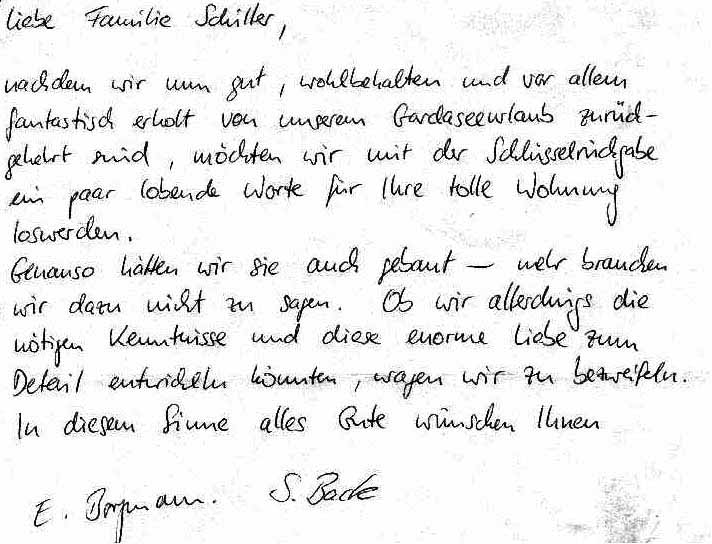 Liebe Familie Schiller,
nachdem wir nun gut, wohlbehalten und vor allem
fantastisch erholt von unserem Gardaseeurlaub zurück-
gekehrt sind, möchten wir mit der Schlüsselrückgabe
ein paar lobende Worte für Ihre tolle Wohnung
loswerden.
Genauso hätten wir sie auch gebaut — mehr brauchen
wir dazu nicht zu sagen. Ob wir allerdings die
nötigen Kenntnisse und diese enorme Liebe zum
Detail entwickeln könnten, wagen wir zu bezweifeln.
In diesem Sinne alles Gute wünschen Ihnen
E. Borgmann. S. Back